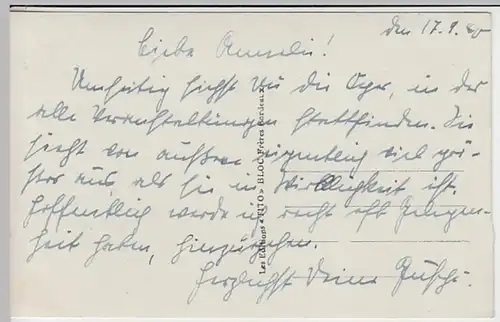 den 17.9.40
Liebe Annelie!
Umseitig siehst Du die Oper, in der
alle Veranstaltungen stattfinden. Sie
sieht von außen eigentlich viel grö-
ßer aus, als sie in Wirklichkeit ist.
Hoffentlich werde ich recht oft Gelegen-
heit haben, hinzugehen.
Herzlichst Deine
Les Editions « FITO » BLOC Frères Bordeaux